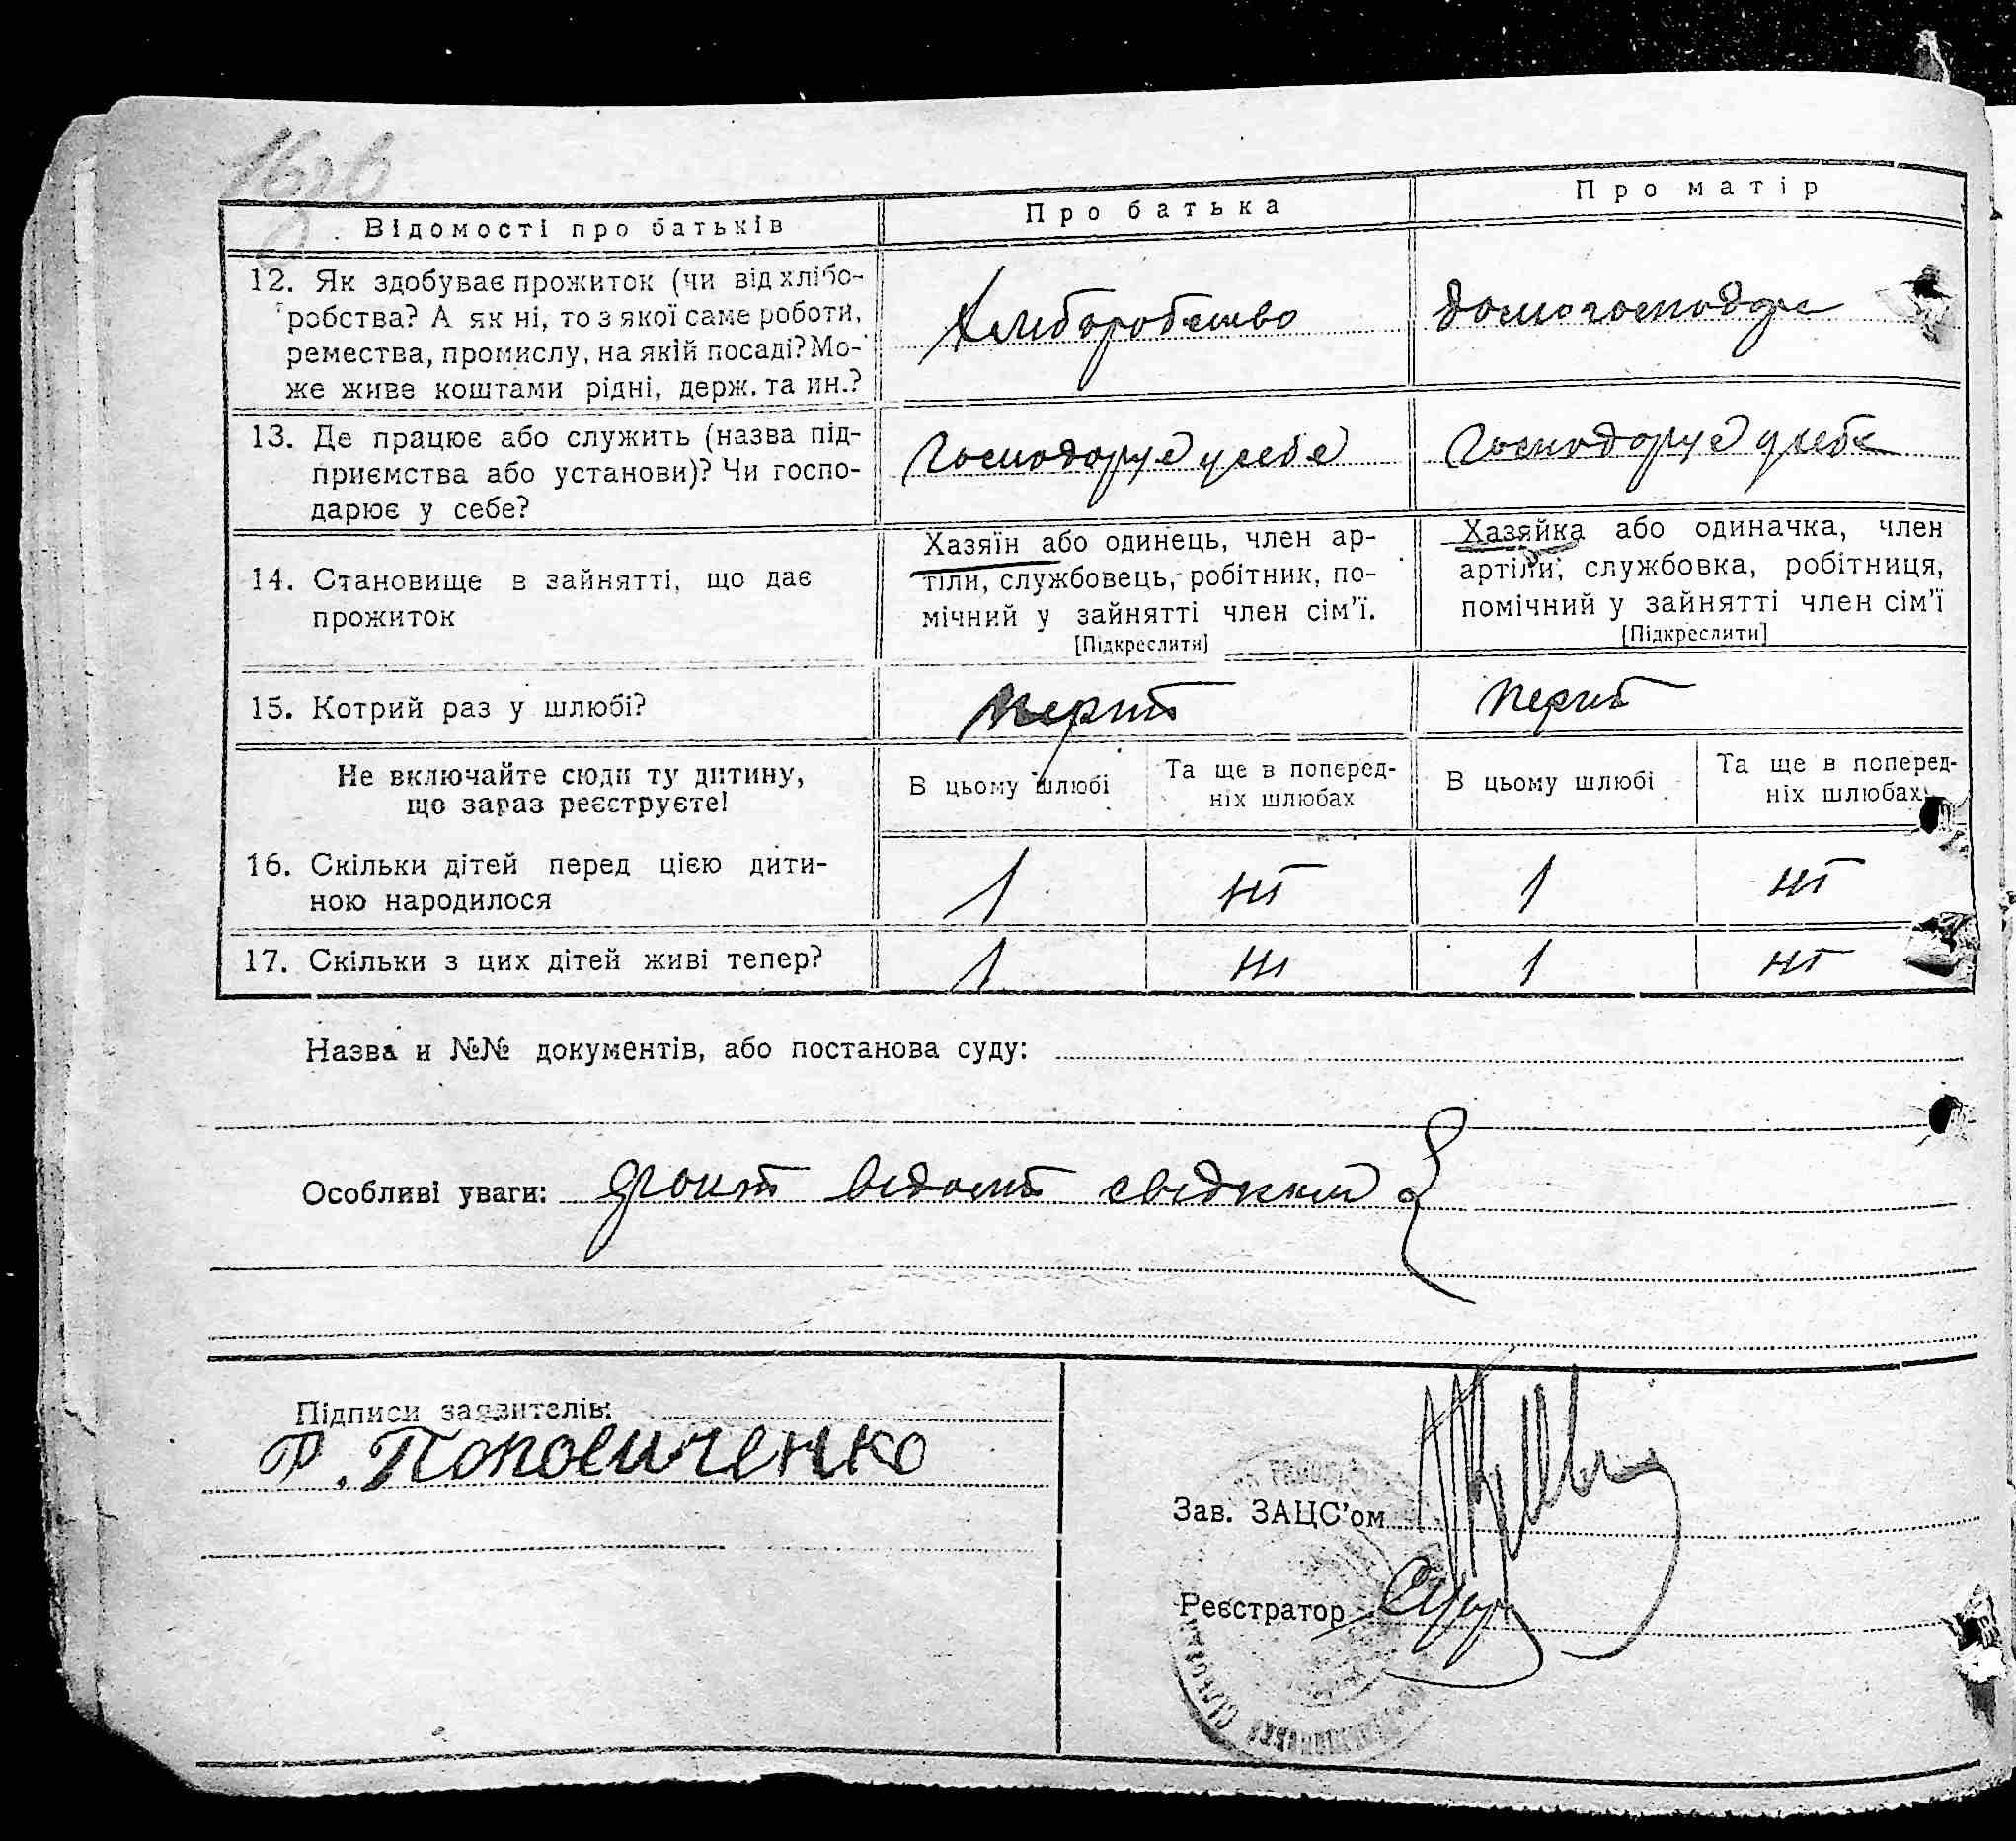 Відомості про батьків
Про батька
Про матір
12. Як здобуває прожиток (чи від хлібо-
робства? А як ні, то з якої саме роботи,
ремества, промислу, на якій посаді? Мо-
же живе коштами рідні, держ. та ин.?
Хліборобство
13. Де працює або служить (назва під-
приємства або установи)? Чи госпо-
дарює у себе?
Господарує у себе
Господарує у себе
14. Становище в зайнятті, що дає
прожиток
Хазяїн або одинець, член ар-
тіли, службовець, робітник, по-
мічний у зайнятті член сім'ї.
[Підкреслити]
Хазяйка або одиначка, член
артіли, службовка, робітниця,
помічний у зайнятті член сім'ї
[Підкреслити]
15. Котрий раз у шлюбі?
Не включайте сюди ту дитину,
що зараз реєструєте!
В цьому шлюбі
Та ще в поперед-
ніх шлюбах
В цьому шлюбі
Та ще в поперед-
ніх шлюбах
16. Скільки дітей перед цією дити-
ною народилося
1
ні
1
ні
17. Скільки з цих дітей живі тепер?
1
ні
1
ні
Назва и №№ документів, або постанова суду:
Особливі уваги:
Підписи заявителів:
Поповиченко
Зав. ЗАЦС'ом
Реєстратор